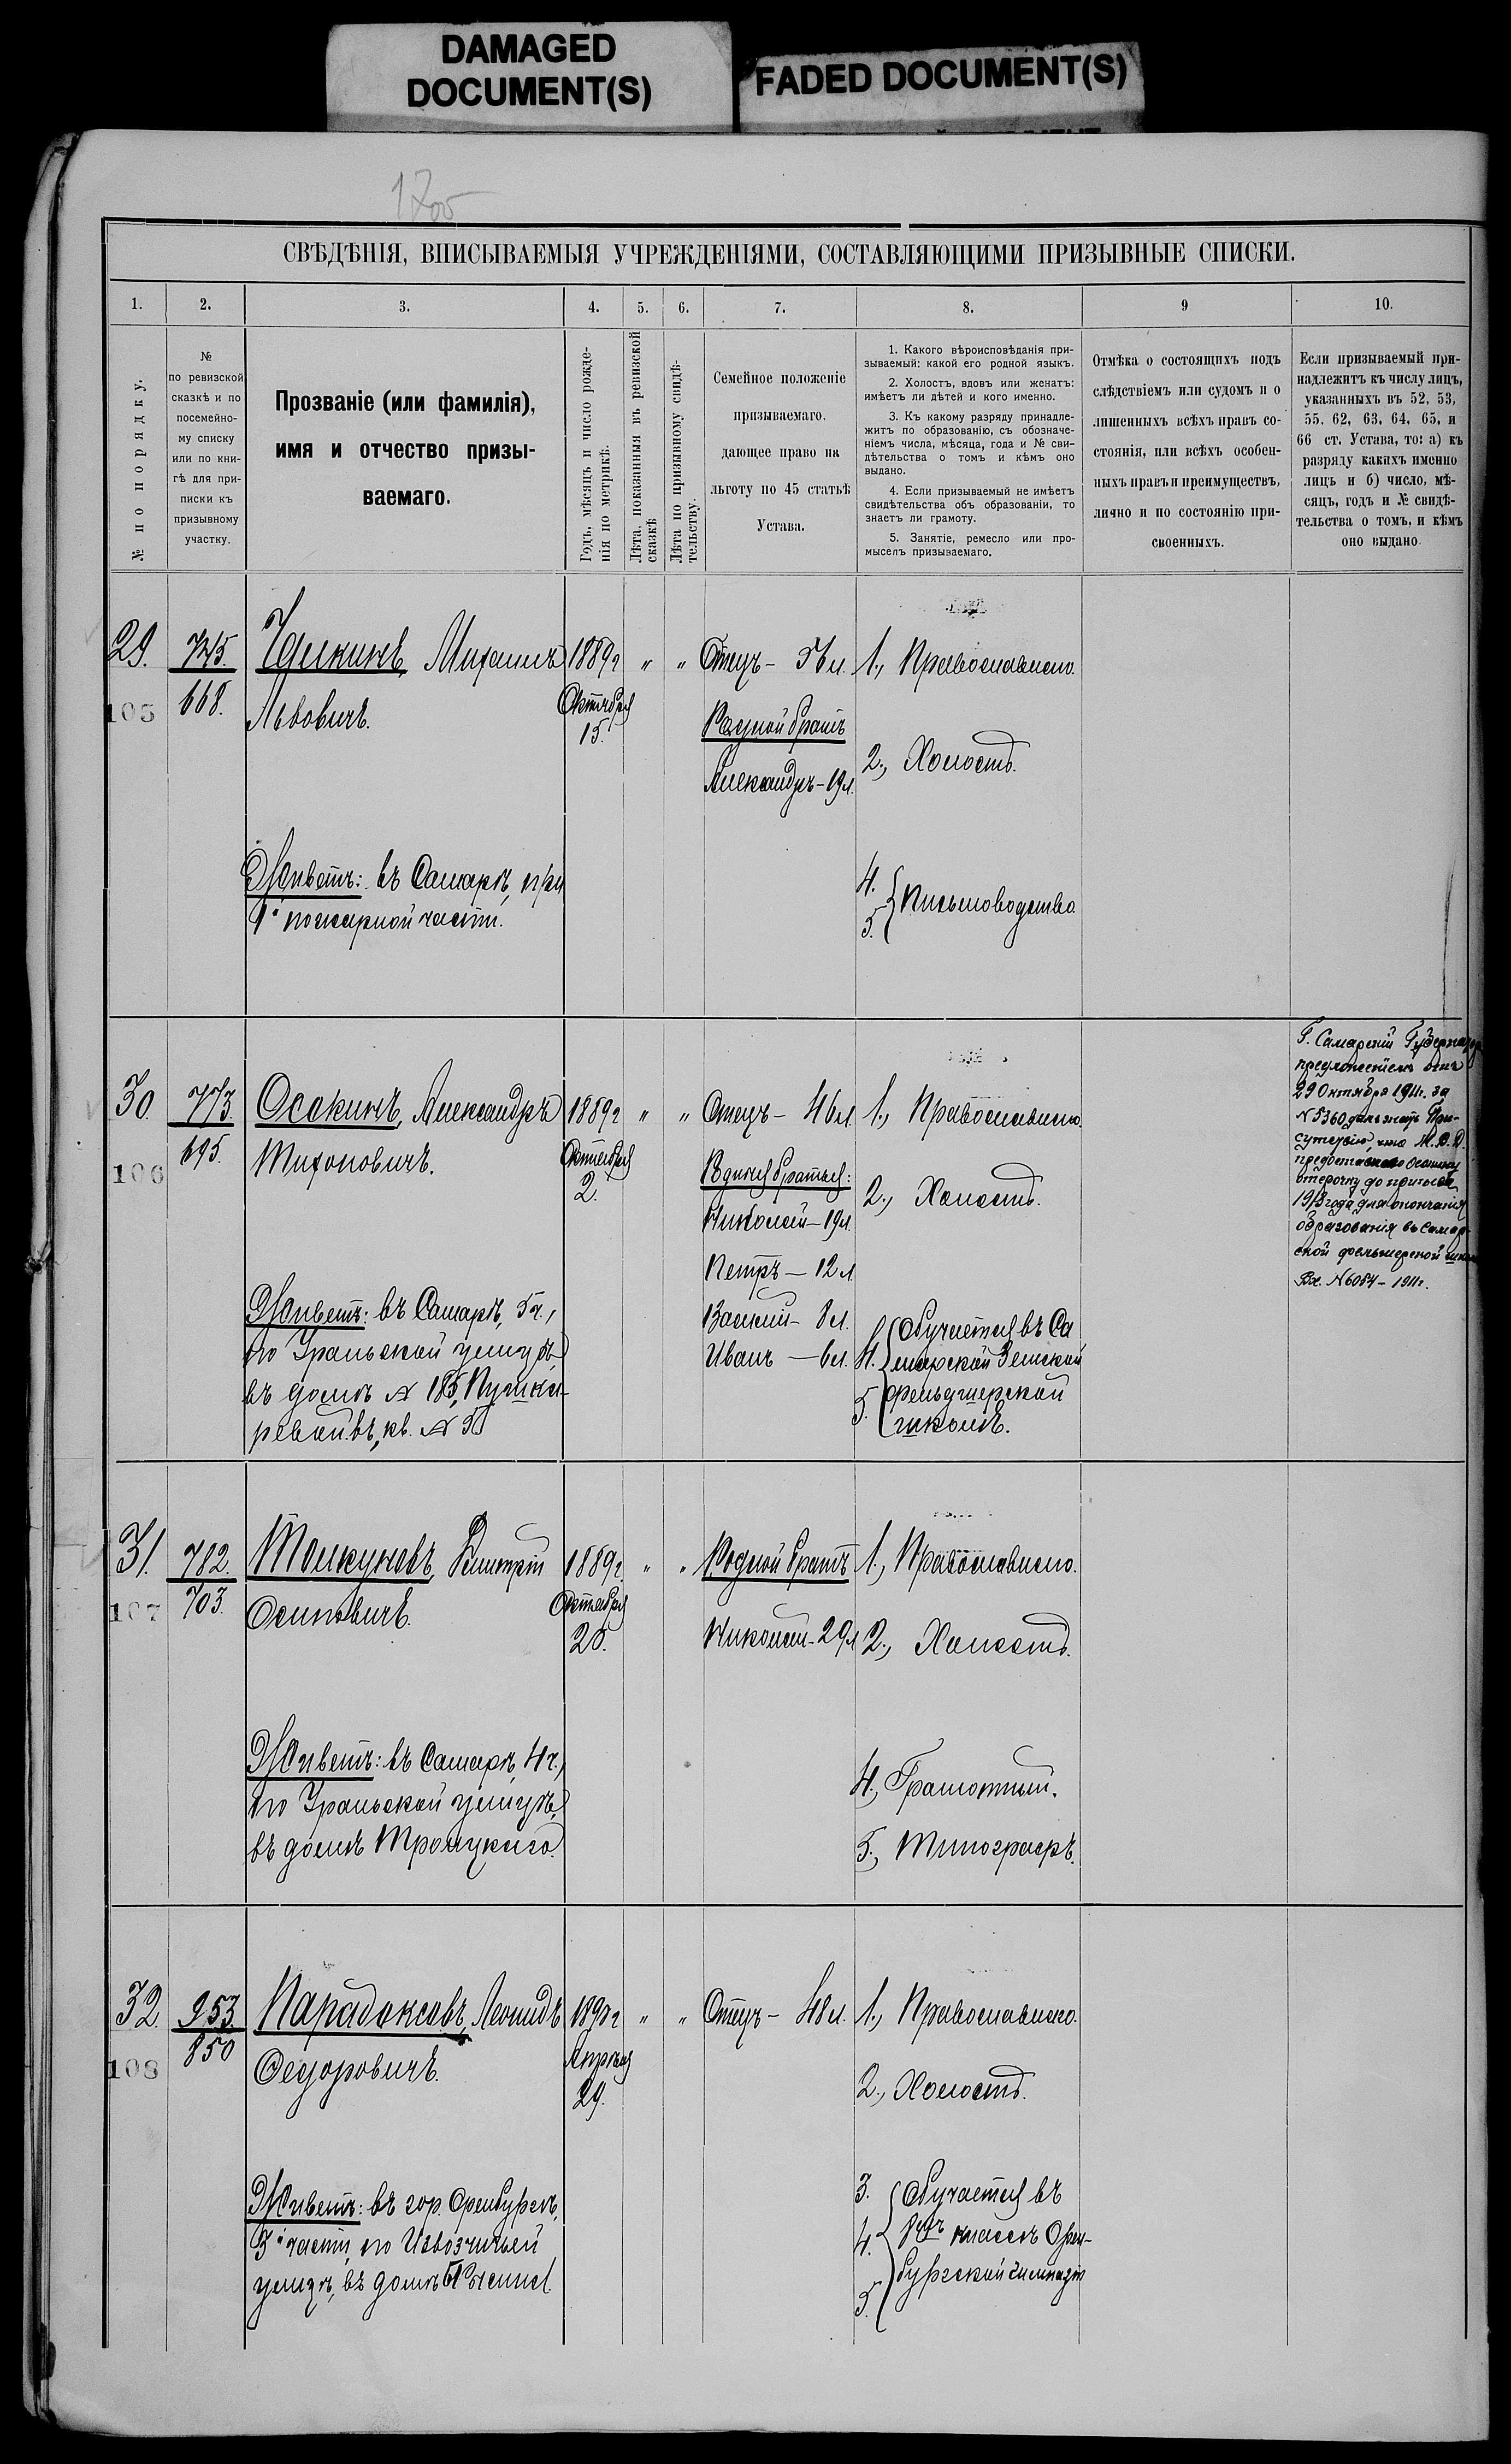 DAMAGED
DOCUMENT(S)
FADED DOCUMENT(S)
СВѢДѢНІЯ, ВПИСЫВАЕМЫЯ УЧРЕЖДЕНІЯМИ, СОСТАВЛЯЮЩИМИ ПРИЗЫВНЫЕ СПИСКИ.
1.
2.
3.
4.
5.
6.
7.
8.
9
10.
№ по порядку.
№
по ревизской
сказкѣ и по
посемейно-
му списку
или по кни-
гѣ для при-
писки къ
призывному
участку.
Прозваніе (или фамилія),
имя и отчество призы-
ваемаго.
Годъ, мѣсяцъ и число рожде-
нія по метрикѣ.
Лѣта, показанныя въ ревизской
сказкѣ
Лѣта по призывному свидѣ-
тельству.
Семейное положеніе
призываемаго,
дающее право на
льготу по 45 статьѣ
Устава.
1. Какого вѣроисповѣданія при-
зываемый: какой его родной языкъ.
2. Холостъ, вдовъ или женатъ:
имѣетъ ли дѣтей и кого именно.
3. Къ какому разряду принадле-
житъ по образованію, съ обозначе-
ніемъ числа, мѣсяца, года и № сви-
дѣтельства о томъ и кѣмъ оно
выдано.
4. Если призываемый не имѣетъ
свидѣтельства объ образованіи, то
знаетъ ли грамоту.
5. Занятіе, ремесло или про-
мыселъ призываемаго.
Отмѣка о состоящихъ подъ
слѣдствіемъ или судомъ и о
лишенныхъ всѣхъ правъ со-
стоянія, или всѣхъ особен-
ныхъ правъ и преимуществъ,
лично и по состоянію при-
своенныхъ.
Если призываемый при-
надлежитъ къ числу лицъ,
указанныхъ въ 52, 53,
55, 62, 63, 64, 65, и
66 ст. Устава, то: а) къ
разряду какихъ именно
лицъ и б) число, мѣ-
сяцъ, годъ и № свидѣ-
тельства о томъ, и кѣмъ
оно выдано.
29.
105
745.
668.
Михаилъ
Львовичъ.
Живетъ: въ Самарѣ, при
1й пожарной части.
1889г
Октября
15.
" "
Отецъ – 56 л.
Родной братъ
Александръ – 19 л.
1., Православнаго.
2., Холостъ.
4.
5.
Письмоводство
30.
106
773.
695.
Осокинъ, Александръ
Тихоновичъ.
Живетъ: въ Самарѣ, 5ч.,
по Уральской улицѣ
въ домѣ № 185, Пушка-
ревой.въ, кв. № 5
1889г
Октября
2.
" "
Отецъ – 46 л.
Родные братья:
Николай – 19 л.
Петръ – 12 л.
Василій – 8 л.
Иванъ – 6 л.
1., Православнаго.
2., Холостъ.
4.
5.
Обучается въ Са
марской Земской
фельдшерской
школѣ.
Г. Самарскій Губернатор
предложеніемъ отъ
29 Октября 1911г. за
№ 5360 далъ знать При-
сутствію, что М. В. Д.
предоставило Осокину
отсрочку до призыва
1913 года для окончанія
образованія въ Самар-
ской фельшерской школѣ
Вх. № 6084 – 1911г.
31.
107
782.
703.
Толкуновъ, Дмитрій
Осиповичъ.
Живетъ: въ Самарѣ, 4ч.,
по Уральской улицѣ,
въ домѣ Троицкаго.
1889г.
Октября
25.
" "
Родной братъ
Николай – 29 л
1., Православнаго.
2., Холостъ.
4., Грамотный.
5., Типографъ.
32.
108
953.
850
Парадоксовъ, Леонидъ
Федоровичъ.
Живетъ: въ гор. Оренбургѣ,
3й части, по Извозчичьей
улицѣ, въ домѣ
1890г
Апрѣля
29.
" "
Отецъ – 48 л.
1., Православнаго.
2., Холостъ.
3.
4.
5.
Обучается въ
8мъ классѣ Орен-
бургской гимназіи